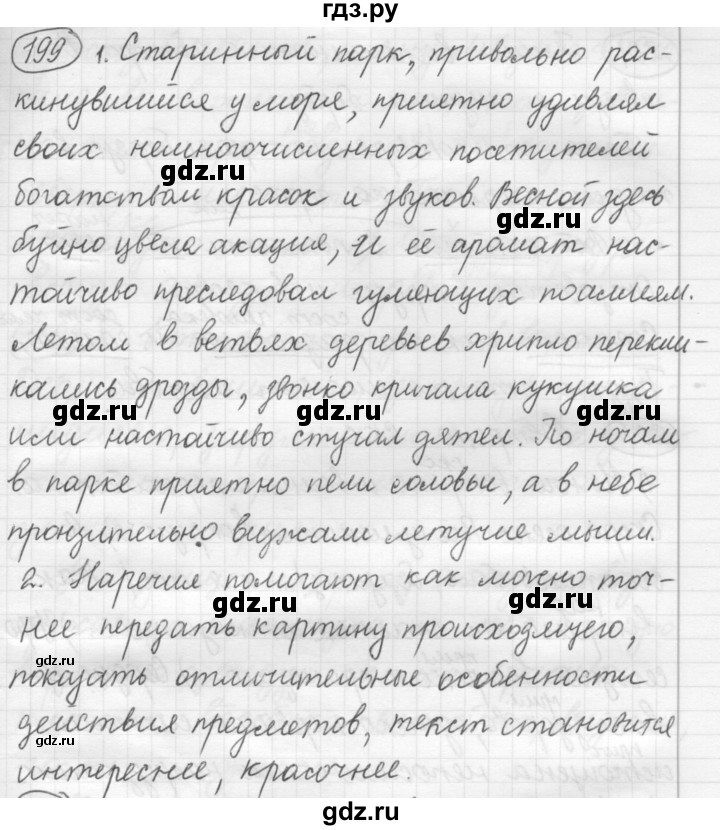 гдз.ру
199 1. Старинный парк, привольно рас-
кинувшийся у моря, приятно удивлял
своих немногочисленных посетителей
gdz.ru
богатством красок и звуков. Весной здесь
gdz.ru
буйно цвела акация, и её аромат нас-
тойчиво преследовал гуляющих по аллеям.
Летом в ветвях деревьев хрипло перекли-
кались дрозды, звонко кричала кукушка
gdz.ru gdz.ru gdz.ru
или настойчиво стучал дятел. По ночам
в парке приятно пели соловьи, а в небе
пронзительно визжали летучие мыши.
2. Наречия помогают как можно точ-
gdz.ru gdz.ru
нее передать картину происходящего,
gdz.ru
показать отличительные особенности
действия предметов, текст становится
gdz.ru
интереснее, красочнее.
gdz.ru
gdz.ru